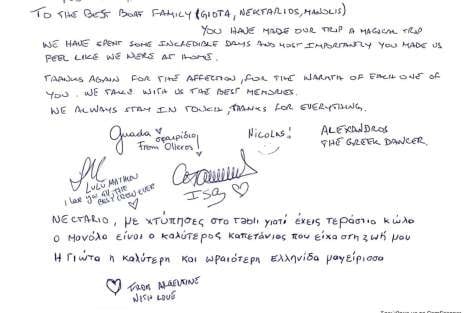 TO THE BEST BOAT FAMILY (GIOTA, NEKTARIOS, MANOLIS)
YOU HAVE MADE OUR TRIP A MAGICAL TRIP
WE HAVE SPENT SOME INCREDIBLE DAYS AND MOST IMPORTANTLY YOU MADE US
FEEL LIKE WE WERE AT HOME.
THANKS AGAIN FOR THE AFFECTION, FOR THE WARMTH OF EACH ONE OF
YOU. WE TAKE WITH US THE BEST MEMORIES.
WE ALWAYS STAY IN TOUCH, THANKS FOR EVERYTHING.
Guada
From Olleros
Nicolas!
ALEXANDROS
THE GREEK DANCER
LULU MATHON
I love you all THE
BEST CREW EVER
ISA
NECTARIO, με χτύπησες στο γαθλι γιατί έχεις τεράστιο κώλο
ο Μανόλο είναι ο καλύτερος καπετάνιος που είχα στη ζωή μου
Η Γιώτα η καλύτερη και ωραιότερη ελληνίδα μαγείρισσα
FROM ARGENTINE
WISH LOVE